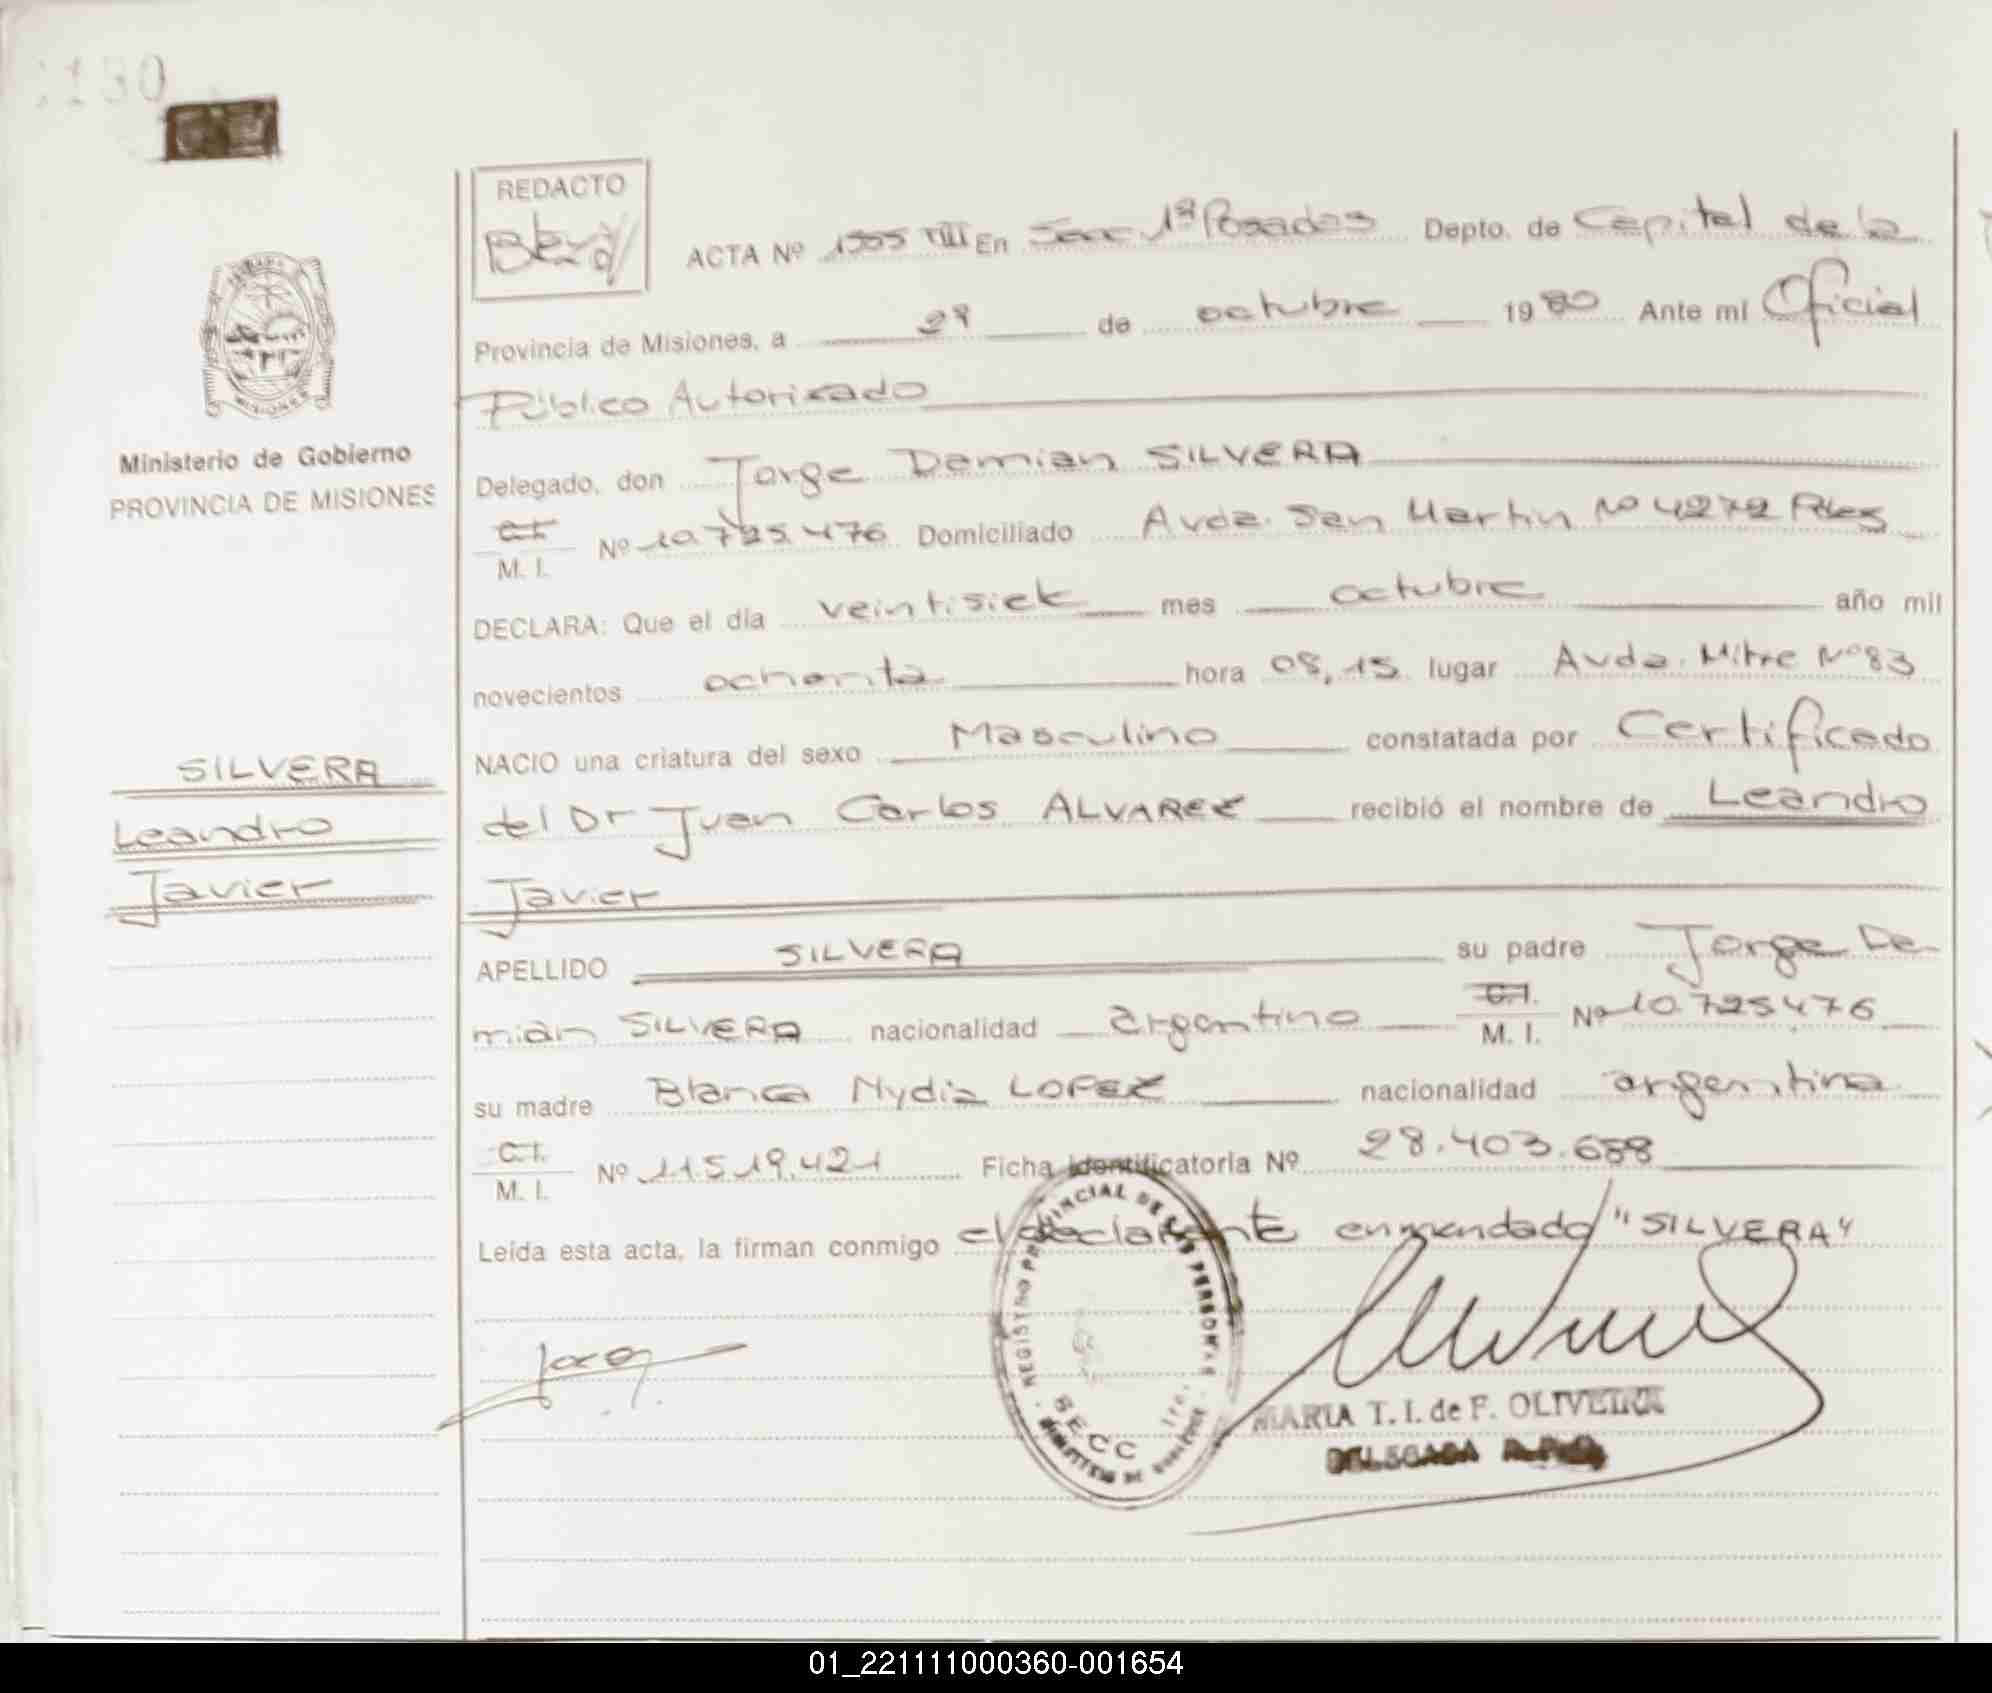 130
REDACTO
ACTA Nº 1505 VIII En Secc 1ª Posadas Depto. de Capital de la
Provincia de Misiones, a 29 de octubre 1980 Ante mí Oficial
Público Autorizado
MISIONES
Ministerio de Gobierno
PROVINCIA DE MISIONES
Delegado, don Jorge Damian SILVERA
C.I.
M. I. Nº 10.725.476 Domiciliado Avda. San Martin Nº 4272 Pdas
DECLARA: Que el día veintisiete mes octubre año mil
novecientos ochenta hora 08,15 lugar Avda. Mitre Nº 83
NACIO una criatura del sexo Masculino constatada por Certificado
del Dr Juan Carlos ALVAREZ recibió el nombre de Leandro
Javier
SILVERA
Leandro
Javier
APELLIDO SILVERA su padre Jorge Da-
mián SILVERA nacionalidad argentino C.I.
M. I. Nº 10.725.476
su madre Blanca Nydia LOPEZ nacionalidad argentina
C.I.
M. I. Nº 11.519.421 Ficha identificatoria Nº 28.403.688
Leída esta acta, la firman conmigo el declarante enmendado "SILVERA"
REGISTRO PROVINCIAL DE LAS PERSONAS
SECC 1ra.
MINISTERIO DE GOBIERNO
MARIA T. I. de F. OLIVEIRA
DELEGADA
01_221111000360-001654